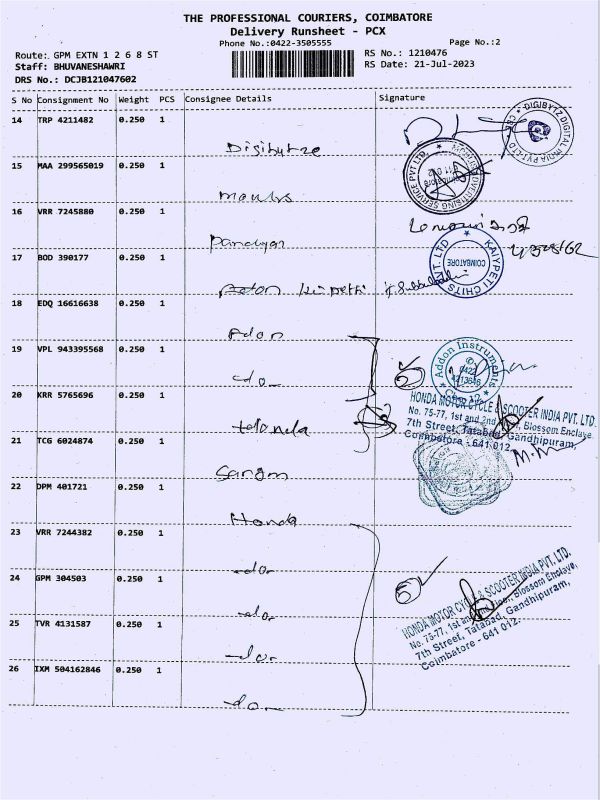 THE PROFESSIONAL COURIERS, COIMBATORE
Delivery Runsheet - PCX
Phone No.:0422-3505555
Page No.:2
Route: GPM EXTN 1 2 6 8 ST
RS No.: 1210476
Staff: BHUVANESHAWRI
RS Date: 21-Jul-2023
DRS No.: DCJB121047602
S No Consignment No Weight PCS Consignee Details Signature
14 TRP 4211482 0.250 1
DIGIBYTZ DIGITAL INDIA PVT LTD
15 MAA 299565019 0.250 1
ADVERTISING SERVICE PVT LTD
16 VRR 7245880 0.250 1
Pandiyan
17 BOD 390177 0.250 1
KAIYPETI CHITS PVT. LTD
COIMBATORE
18 EDQ 16616638 0.250 1
Adon
19 VPL 943395568 0.250 1
Addon Instruments
0422
-do-
20 KRR 5765696 0.250 1
HONDA MOTOR CYCLE & SCOOTER INDIA PVT. LTD.
No. 75-77, 1st and 2nd Floor, Blossom Enclave,
7th Street, Tatabad, Gandhipuram,
Coimbatore - 641 012.
21 TCG 6024874 0.250 1
Sangam
22 DPM 401721 0.250 1
Honda
23 VRR 7244382 0.250 1
-do-
24 GPM 304503 0.250 1
HONDA MOTOR CYCLE & SCOOTER INDIA PVT. LTD.
No. 75-77, 1st and Floor, Blossom Enclave,
7th Street, Tatabad, Gandhipuram,
Coimbatore - 641 012.
-do-
25 TVR 4131587 0.250 1
-do-
26 IXM 504162846 0.250 1
-do-